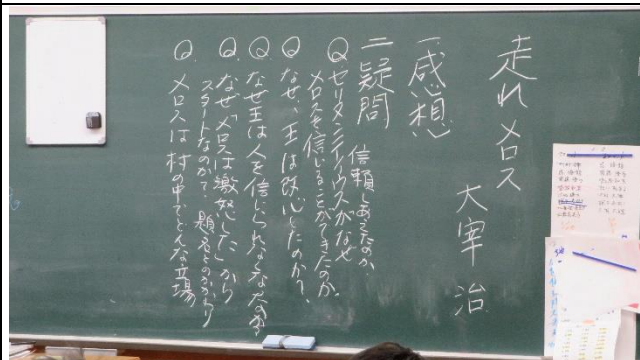 走れメロス
大宰 治
一感想
二疑問
信頼しあえたのか
Q セリヌンティーウスがなぜ
メロスを信じることができたのか。
Q なぜ、王は改心したのか?
Q なぜ王は人を信じられなくなったのか
Q なぜ「メロスは激怒した」から
スタートなのか?、題名とのかかわり
Q メロスは村の中でどんな立場